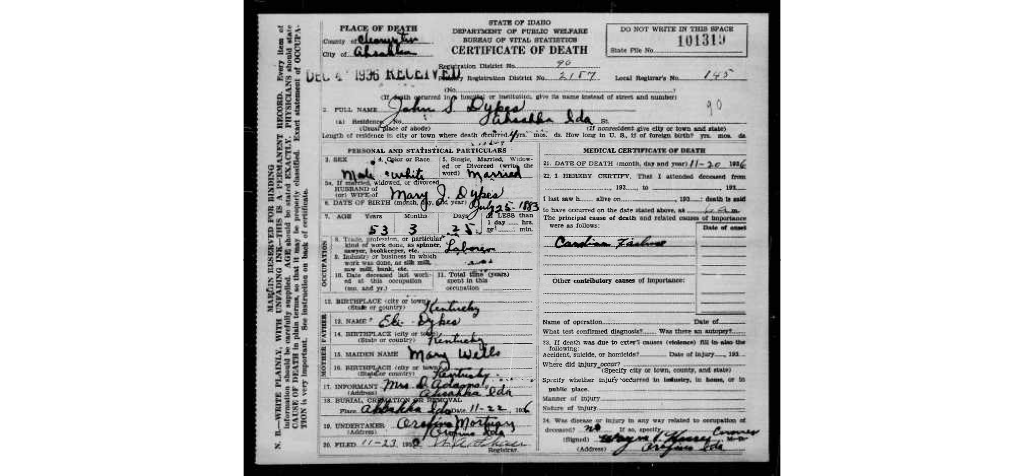 STATE OF IDAHO
DEPARTMENT OF PUBLIC WELFARE
BUREAU OF VITAL STATISTICS
CERTIFICATE OF DEATH
DO NOT WRITE IN THIS SPACE
State File No. 101319
PLACE OF DEATH
County of Clearwater
City of Ahsahka
DEC 4 1936 RECEIVED
Registration District No. 90
Primary Registration District No. 2157 Local Registrar's No. 145
(No.
(If death occurred in a hospital or institution, give its name instead of street and number)
2. FULL NAME John S. Dykes
90
(a) Residence. No. Ahsahka Ida St.
(Usual place of abode) (If nonresident give city or town and state)
Length of residence in city or town where death occurred yrs. mos. ds. How long in U. S., if of foreign birth? yrs. mos. ds.
PERSONAL AND STATISTICAL PARTICULARS
3. SEX 4. Color or Race 5. Single, Married, Widowed or Divorced (write the word)
Male White Married
5a. If married, widowed, or divorced
HUSBAND of
(or) WIFE of Mary J. Dykes
6. DATE OF BIRTH (month, day, and year) July 25-1883
7. AGE Years Months Days If LESS than 1 day hrs. or min.
53 3 25
OCCUPATION
8. Trade, profession, or particular kind of work done, as spinner, sawyer, bookkeeper, etc. Laborer
9. Industry or business in which work was done, as silk mill, saw mill, bank, etc.
10. Date deceased last worked at this occupation (mo. and yr.)
11. Total time (years) spent in this occupation
12. BIRTHPLACE (city or town)
(State or country) Kentucky
FATHER
13. NAME Eli Dykes
14. BIRTHPLACE (city or town)
(State or country) Kentucky
MOTHER
15. MAIDEN NAME Mary Wells
16. BIRTHPLACE (city or town)
(State or country) Kentucky
17. INFORMANT Mrs. D. Adams
(Address) Ahsahka Ida
18. BURIAL, CREMATION OR REMOVAL
Place Ahsahka Ida Date 11-22 1936
19. UNDERTAKER Orofino Mortuary
(Address) Orofino Ida
20. FILED 11-23 193
Registrar.
MEDICAL CERTIFICATE OF DEATH
21. DATE OF DEATH (month, day and year) 11-20 1936
22. I HEREBY CERTIFY, That I attended deceased from
, 193 to , 193
I last saw h alive on , 193 death is said
to have occurred on the date stated above, at 6 a m.
The principal cause of death and related causes of importance
were as follows:
Date of onset
Cardiac Failure
Other contributory causes of importance:
Name of operation Date of
What test confirmed diagnosis? Was there an autopsy?
23. If death was due to external causes (violence) fill in also the following:
Accident, suicide, or homicide? Date of injury , 193
Where did injury occur?
(Specify city or town, county, and state)
Specify whether injury occurred in industry, in home, or in
public place.
Manner of injury
Nature of injury
24. Was disease or injury in any way related to occupation of
deceased? No If so, specify
(Signed) Coroner M.D.
(Address) Orofino Ida
MARGIN RESERVED FOR BINDING
N. B.—WRITE PLAINLY, WITH UNFADING INK—THIS IS A PERMANENT RECORD. Every item of
information should be carefully supplied. AGE should be stated EXACTLY. PHYSICIANS should state
CAUSE OF DEATH in plain terms, so that it may be properly classified. Exact statement of OCCUPA-
TION is very important. See instruction on back of certificate.